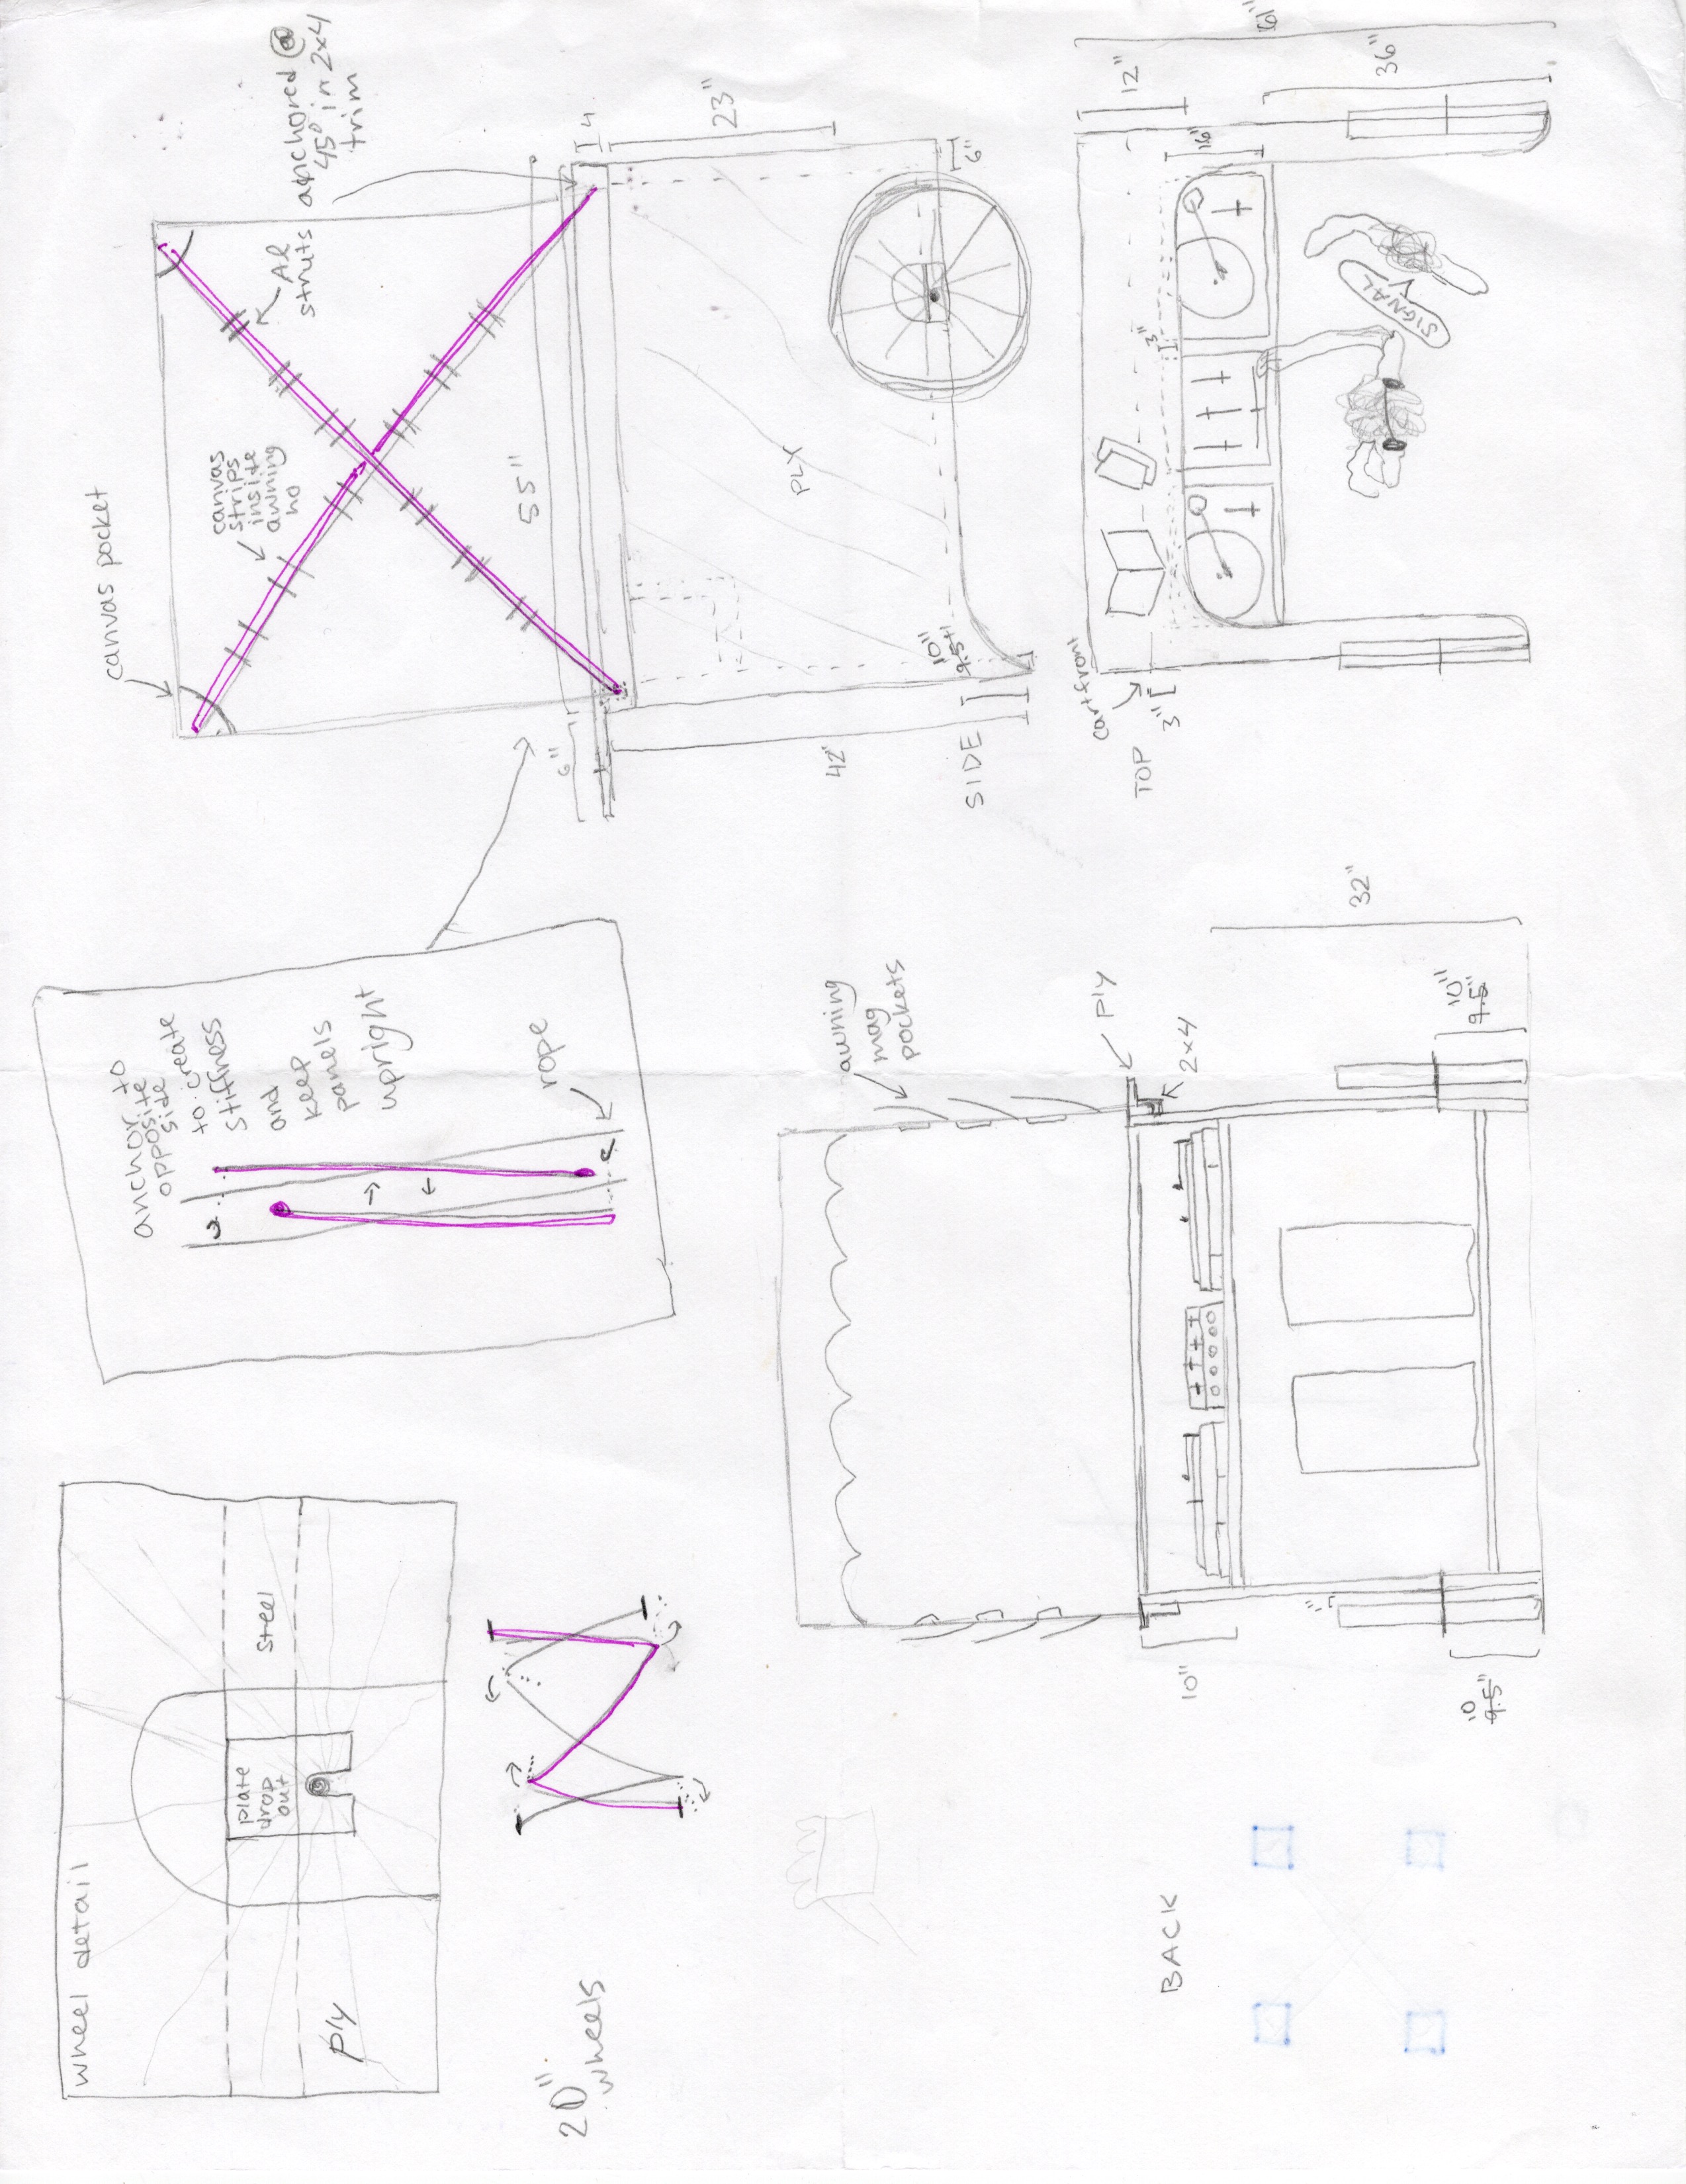 wheel detail
plate
drop
out
steel
ply
20"
wheels
anchor to
opposite
side
to create
stiffness
and
keep
panels
upright
rope
canvas pocket
canvas
strips
inside
awning
Al
struts
anchored @
45° in 2x4
trim
55"
6"
4
23"
PLY
42"
10"
9.5"
SIDE
6"
awning
mag
pockets
ply
2x4
BACK
10"
32"
10
9.5"
10"
9.5"
cart front
TOP
3"
3"
12"
16"
61"
36"
SIGNAL